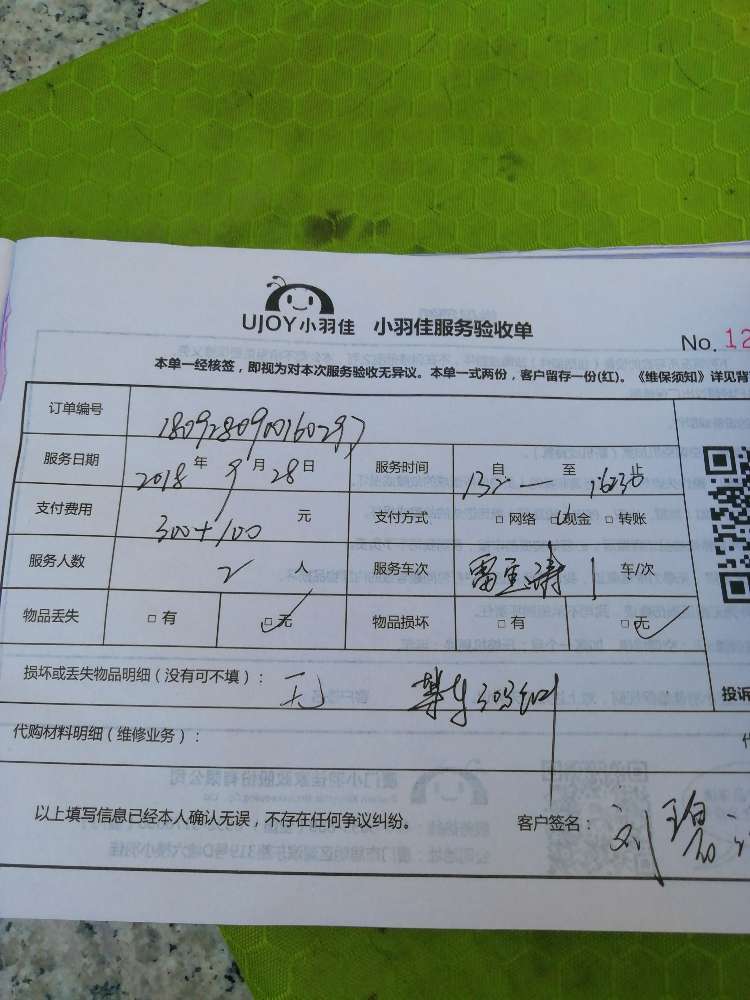 UJOY小羽佳 小羽佳服务验收单
No. 12
本单一经核签，即视为对本次服务验收无异议。本单一式两份，客户留存一份(红)。《维保须知》详见背
订单编号 1809280900160297
服务日期 2018年9月28日 服务时间 自 至 止
支付费用 300+100 元 支付方式 □ 网络 现金 □ 转账
服务人数 2 人 服务车次 1 车/次
物品丢失 □ 有 □ 无 物品损坏 □ 有 □ 无
损坏或丢失物品明细（没有可不填）： 无
投诉
代购材料明细（维修业务）：
以上填写信息已经本人确认无误，不存在任何争议纠纷。 客户签名： 刘碧